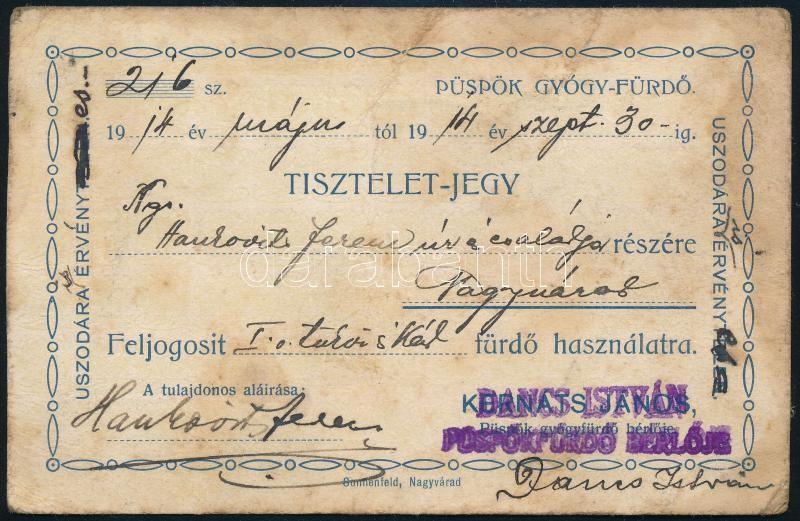 216 sz. PÜSPÖK GYÓGY-FÜRDŐ.
1914 év május tól 1914 év szept. 30-ig.
TISZTELET-JEGY
Ngs.
Hankovits Ferenc úr és családja részére
Nagyvárad
Feljogosit I. o. török és kád fürdő használatra.
A tulajdonos aláirása:
Hankovits Ferenc
KERNÁTS JÁNOS,
Püspök gyógyfürdő bérlője.
DANCS ISTVÁN
PÜSPÖKFÜRDŐ BÉRLŐJE
Dancs István
Sonnenfeld, Nagyvárad
USZODÁRA is ÉRVÉNYes.-
USZODÁRA is ÉRVÉNY
darabanth